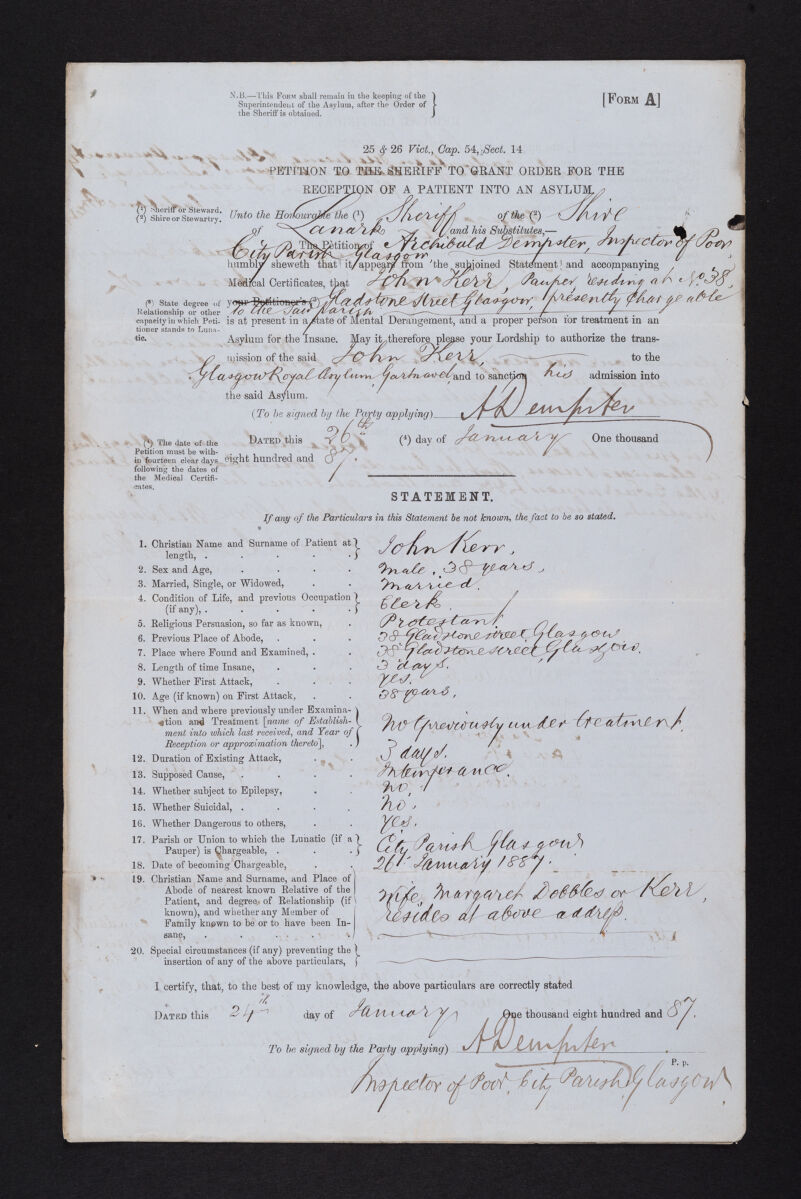 N.B.—This Form shall remain in the keeping of the
Superintendent of the Asylum, after the Order of
the Sheriff is obtained.
[Form A]
25 & 26 Vict., Cap. 54, Sect. 14
PETITION TO THE SHERIFF TO GRANT ORDER FOR THE
RECEPTION OF A PATIENT INTO AN ASYLUM.
(1) Sheriff or Steward.
(2) Shire or Stewartry.
Unto the Honourable the (1) Sheriff of the (2) Shire
of Lanark and his Substitutes,—
The Petition of Archibald Dempster, Inspector of Poor,
City Parish Glasgow
humbly sheweth that it appears from the subjoined Statement and accompanying
Medical Certificates, that John Kerr, Pauper, residing at No. 38,
(3) State degree of
Relationship or other
capacity in which Peti-
tioner stands to Luna-
tic.
your Petitioner's (3) Gladstone Street Glasgow (presently Chargeable
to the said Parish
is at present in a state of Mental Derangement, and a proper person for treatment in an
Asylum for the Insane. May it therefore please your Lordship to authorize the trans-
mission of the said John Kerr, to the
Glasgow Royal Asylum, Gartnavel, and to sanction his admission into
the said Asylum.
(To be signed by the Party applying) A Dempster
(4) The date of the
Petition must be with-
in fourteen clear days
following the dates of
the Medical Certifi-
cates.
Dated this 26th (4) day of January One thousand
eight hundred and 87.
STATEMENT.
If any of the Particulars in this Statement be not known, the fact to be so stated.
1. Christian Name and Surname of Patient at
length, John Kerr,
2. Sex and Age, Male. 38 years,
3. Married, Single, or Widowed, Married.
4. Condition of Life, and previous Occupation
(if any), Clerk.
5. Religious Persuasion, so far as known, Protestant.
6. Previous Place of Abode, 38 Gladstone street, Glasgow
7. Place where Found and Examined, 38 Gladstone street, Glasgow.
8. Length of time Insane, 3 days.
9. Whether First Attack, Yes.
10. Age (if known) on First Attack, 38 years.
11. When and where previously under Examina-
tion and Treatment [name of Establish-
ment into which last received, and Year of
Reception or approximation thereto], No previously under treatment.
12. Duration of Existing Attack, 3 days.
13. Supposed Cause, Intemperance.
14. Whether subject to Epilepsy, No.
15. Whether Suicidal, No.
16. Whether Dangerous to others, Yes.
17. Parish or Union to which the Lunatic (if a
Pauper) is Chargeable, City Parish Glasgow
18. Date of becoming Chargeable, 26th January 1887.
19. Christian Name and Surname, and Place of
Abode of nearest known Relative of the
Patient, and degree of Relationship (if
known), and whether any Member of
Family known to be or to have been In-
sane, Wife, Margaret Dobbles or Kerr,
resides at above address.
20. Special circumstances (if any) preventing the
insertion of any of the above particulars,
I certify, that, to the best of my knowledge, the above particulars are correctly stated
Dated this 24th day of January, One thousand eight hundred and 87.
To be signed by the Party applying) A Dempster
P. p.
Inspector of Poor, City Parish, Glasgow